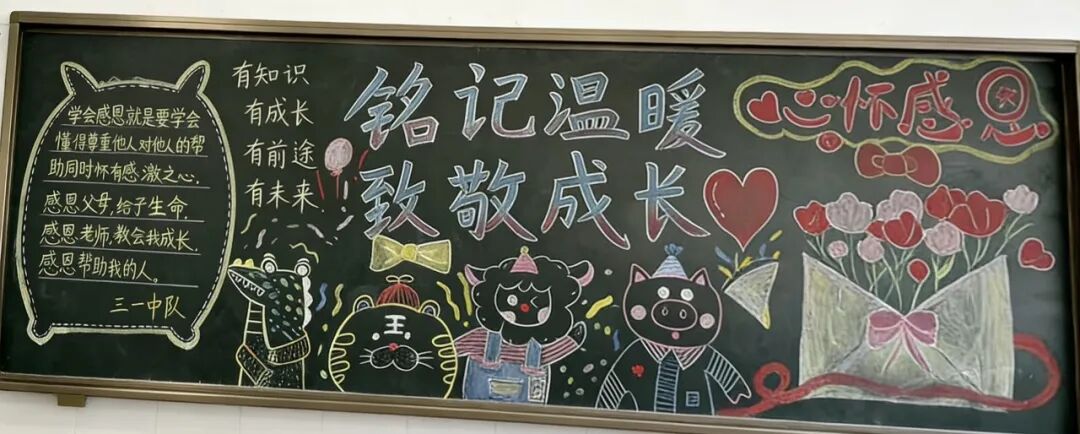 学会感恩就是要学会
懂得尊重他人对他人的帮
助同时怀有感激之心.
感恩父母,给予生命,
感恩老师,教会我成长,
感恩帮助我的人。
三一中队
有知识
有成长
有前途
有未来!!
铭记温暖
致敬成长
心怀感恩
王